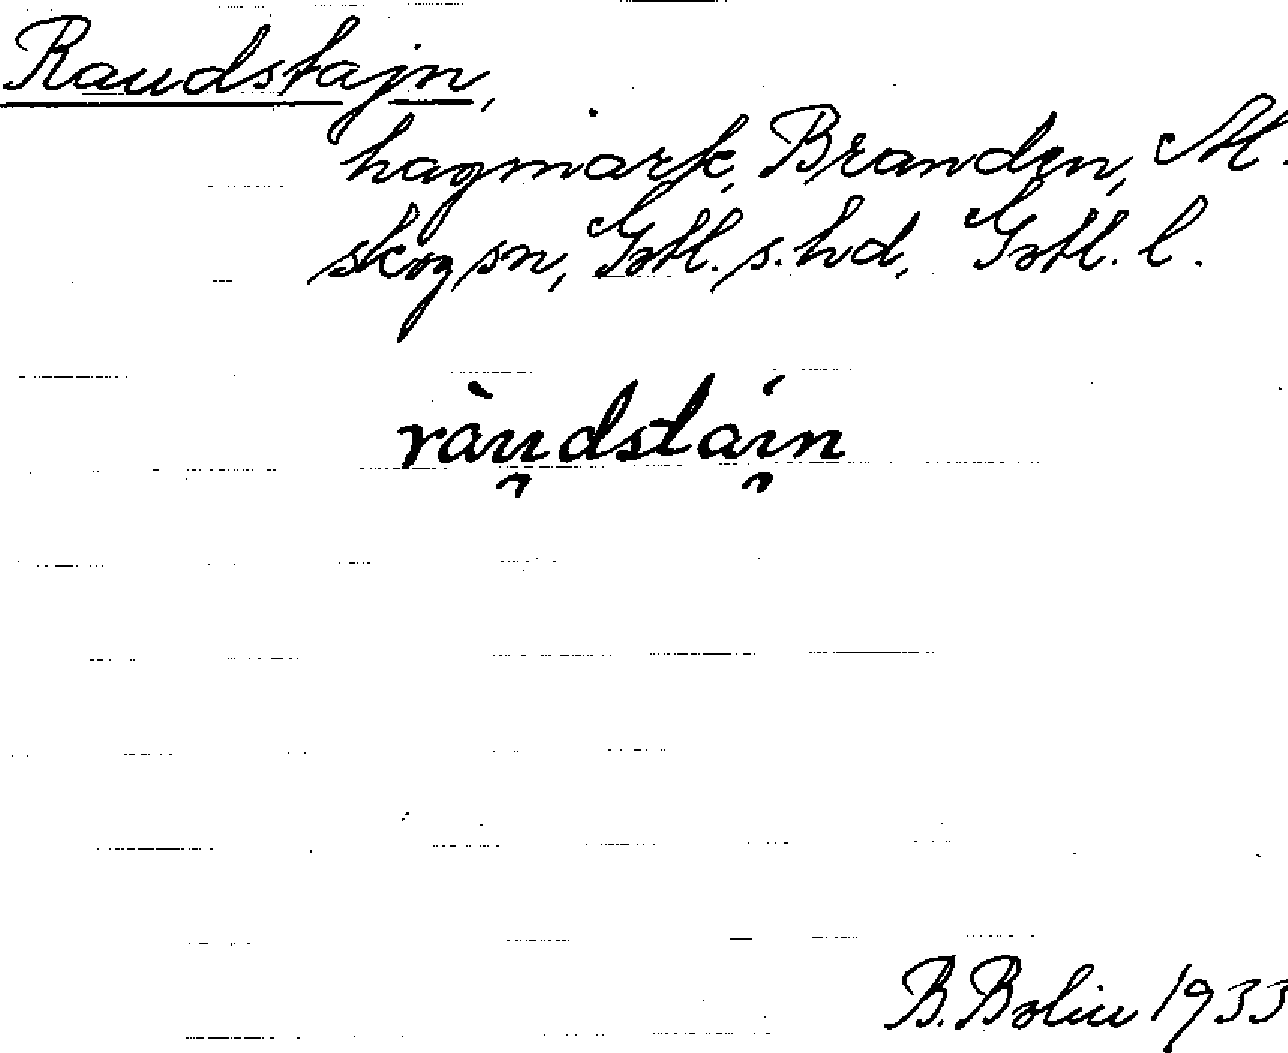 Raudstajn,
hagmark, Branden, M.
skogsn, Gotl. s. hd, Gotl. l.
ràu̯dstái̯n
B. Bolin 1933